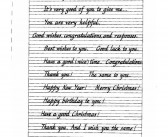 It's very good of you to give me...
You are very helpful.
Good wishes, congratulations and responses.
Best wishes to you. Good luck to you.
Have a good (nice) time. Congratulations
Thank you! The same to you.
Happy New Year! Merry Christmas!
Happy birthday to you!
Have a good Christmas!
Thank you. And I wish you the same!